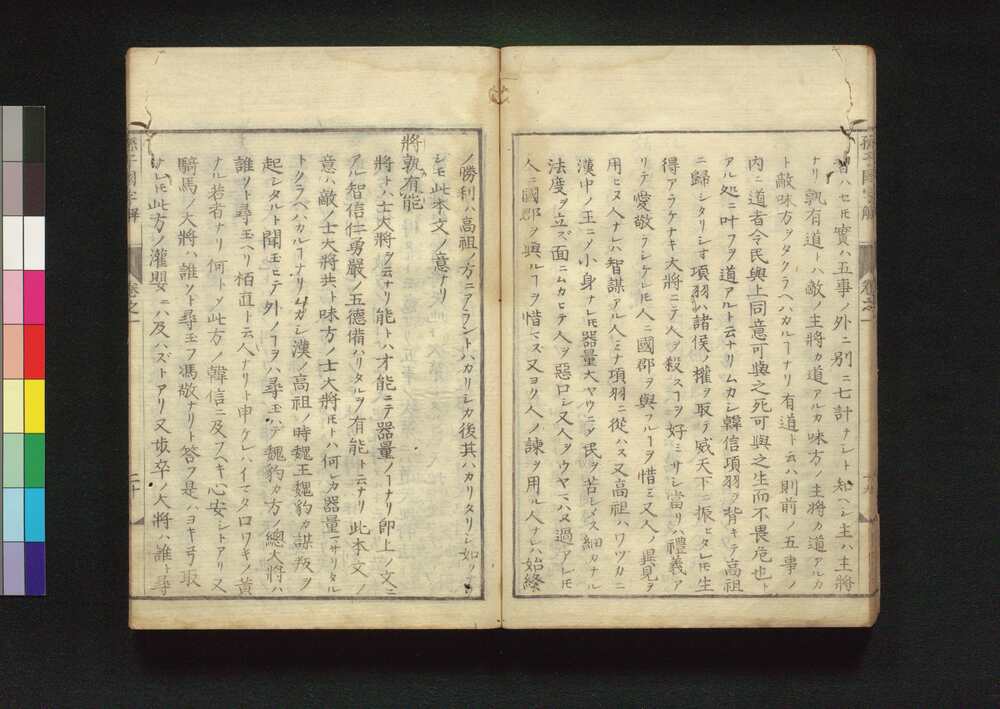 者ハセヒ實ハ五事ノ外ニ別ニ七計ナシト知ヘシ主ハ主將
ナリ孰有道トハ敵ノ主將カ道アルカ味方ノ主將カ道アルカ
ト敵味方ヲタクラヘハカルヿナリ有道ト云ハ則前ノ五事ノ
内ニ道者令民與上同意可與之死可與之生而不畏危也ト
アル処ニ叶フヲ道アルト云ナリムカシ韓信項羽ヲ背キテ高祖
ニ歸シタリシニ項羽ハ諸侯ノ權ヲ取リ威天下ニ振ヒタレ𪜈生
得アラケナキ大將ニテ人ヲ殺スヿヲ好ミサシ當リハ禮義ア
リテ愛敬ラシケレ𪜈人ニ國郡ヲ與フルヿヲ惜ミ又人ノ異見ヲ
用ヒヌ人ナレハ智謀アル人ミナ項羽ニ從ハス又高祖ハワツカニ
漢中ノ王ニノ小身ナレ𪜈器量大ヤウニノ民ヲ苦シメス細カナル
法度ヲ立ズ面ニムカヒテ人ヲ惡口シ又人ヲウヤマハヌ過アレ𪜈
人ニ國郡ヲ與ルヿヲ惜マス又ヨク人ノ諫ヲ用ル人ナレハ始終
ノ勝利ハ高祖ノ方ニアラントハカリシカ後其ハカリタリシ如クナリ
シモ此本文ノ意ナリ
將孰有能
將トハ士大將ヲ云ナリ能トハ才能ニテ器量ノヿナリ即上ノ文ニ
アル智信仁勇嚴ノ五德備ハリタルヲ有能ト云ナリ此本文ノ
意ハ敵ノ士大將共ト味方ノ士大將𪜈トハ何レカ器量マサリタル
トクラヘハカルヿナリムカシ漢ノ高祖ノ時魏王魏豹カ謀叛ヲ
起シタルト聞玉ヒテ外ノヿヲハ尋玉ハデ魏豹カ方ノ總大將ハ
誰ソト尋玉ヘリ栢直ト云人ナリト申ケレハイマタ口ワキノ黄
ナル若者ナリ何トノ此方ノ韓信ニ及フヘキ心安シトアリ又
騎馬ノ大將ハ誰ソト尋玉フ馮敬ナリト答フ是ハヨキ弓取
ナレ𪜈此方ノ灌嬰ニハ及ハズトアリ又歩卒ノ大將ハ誰ト尋